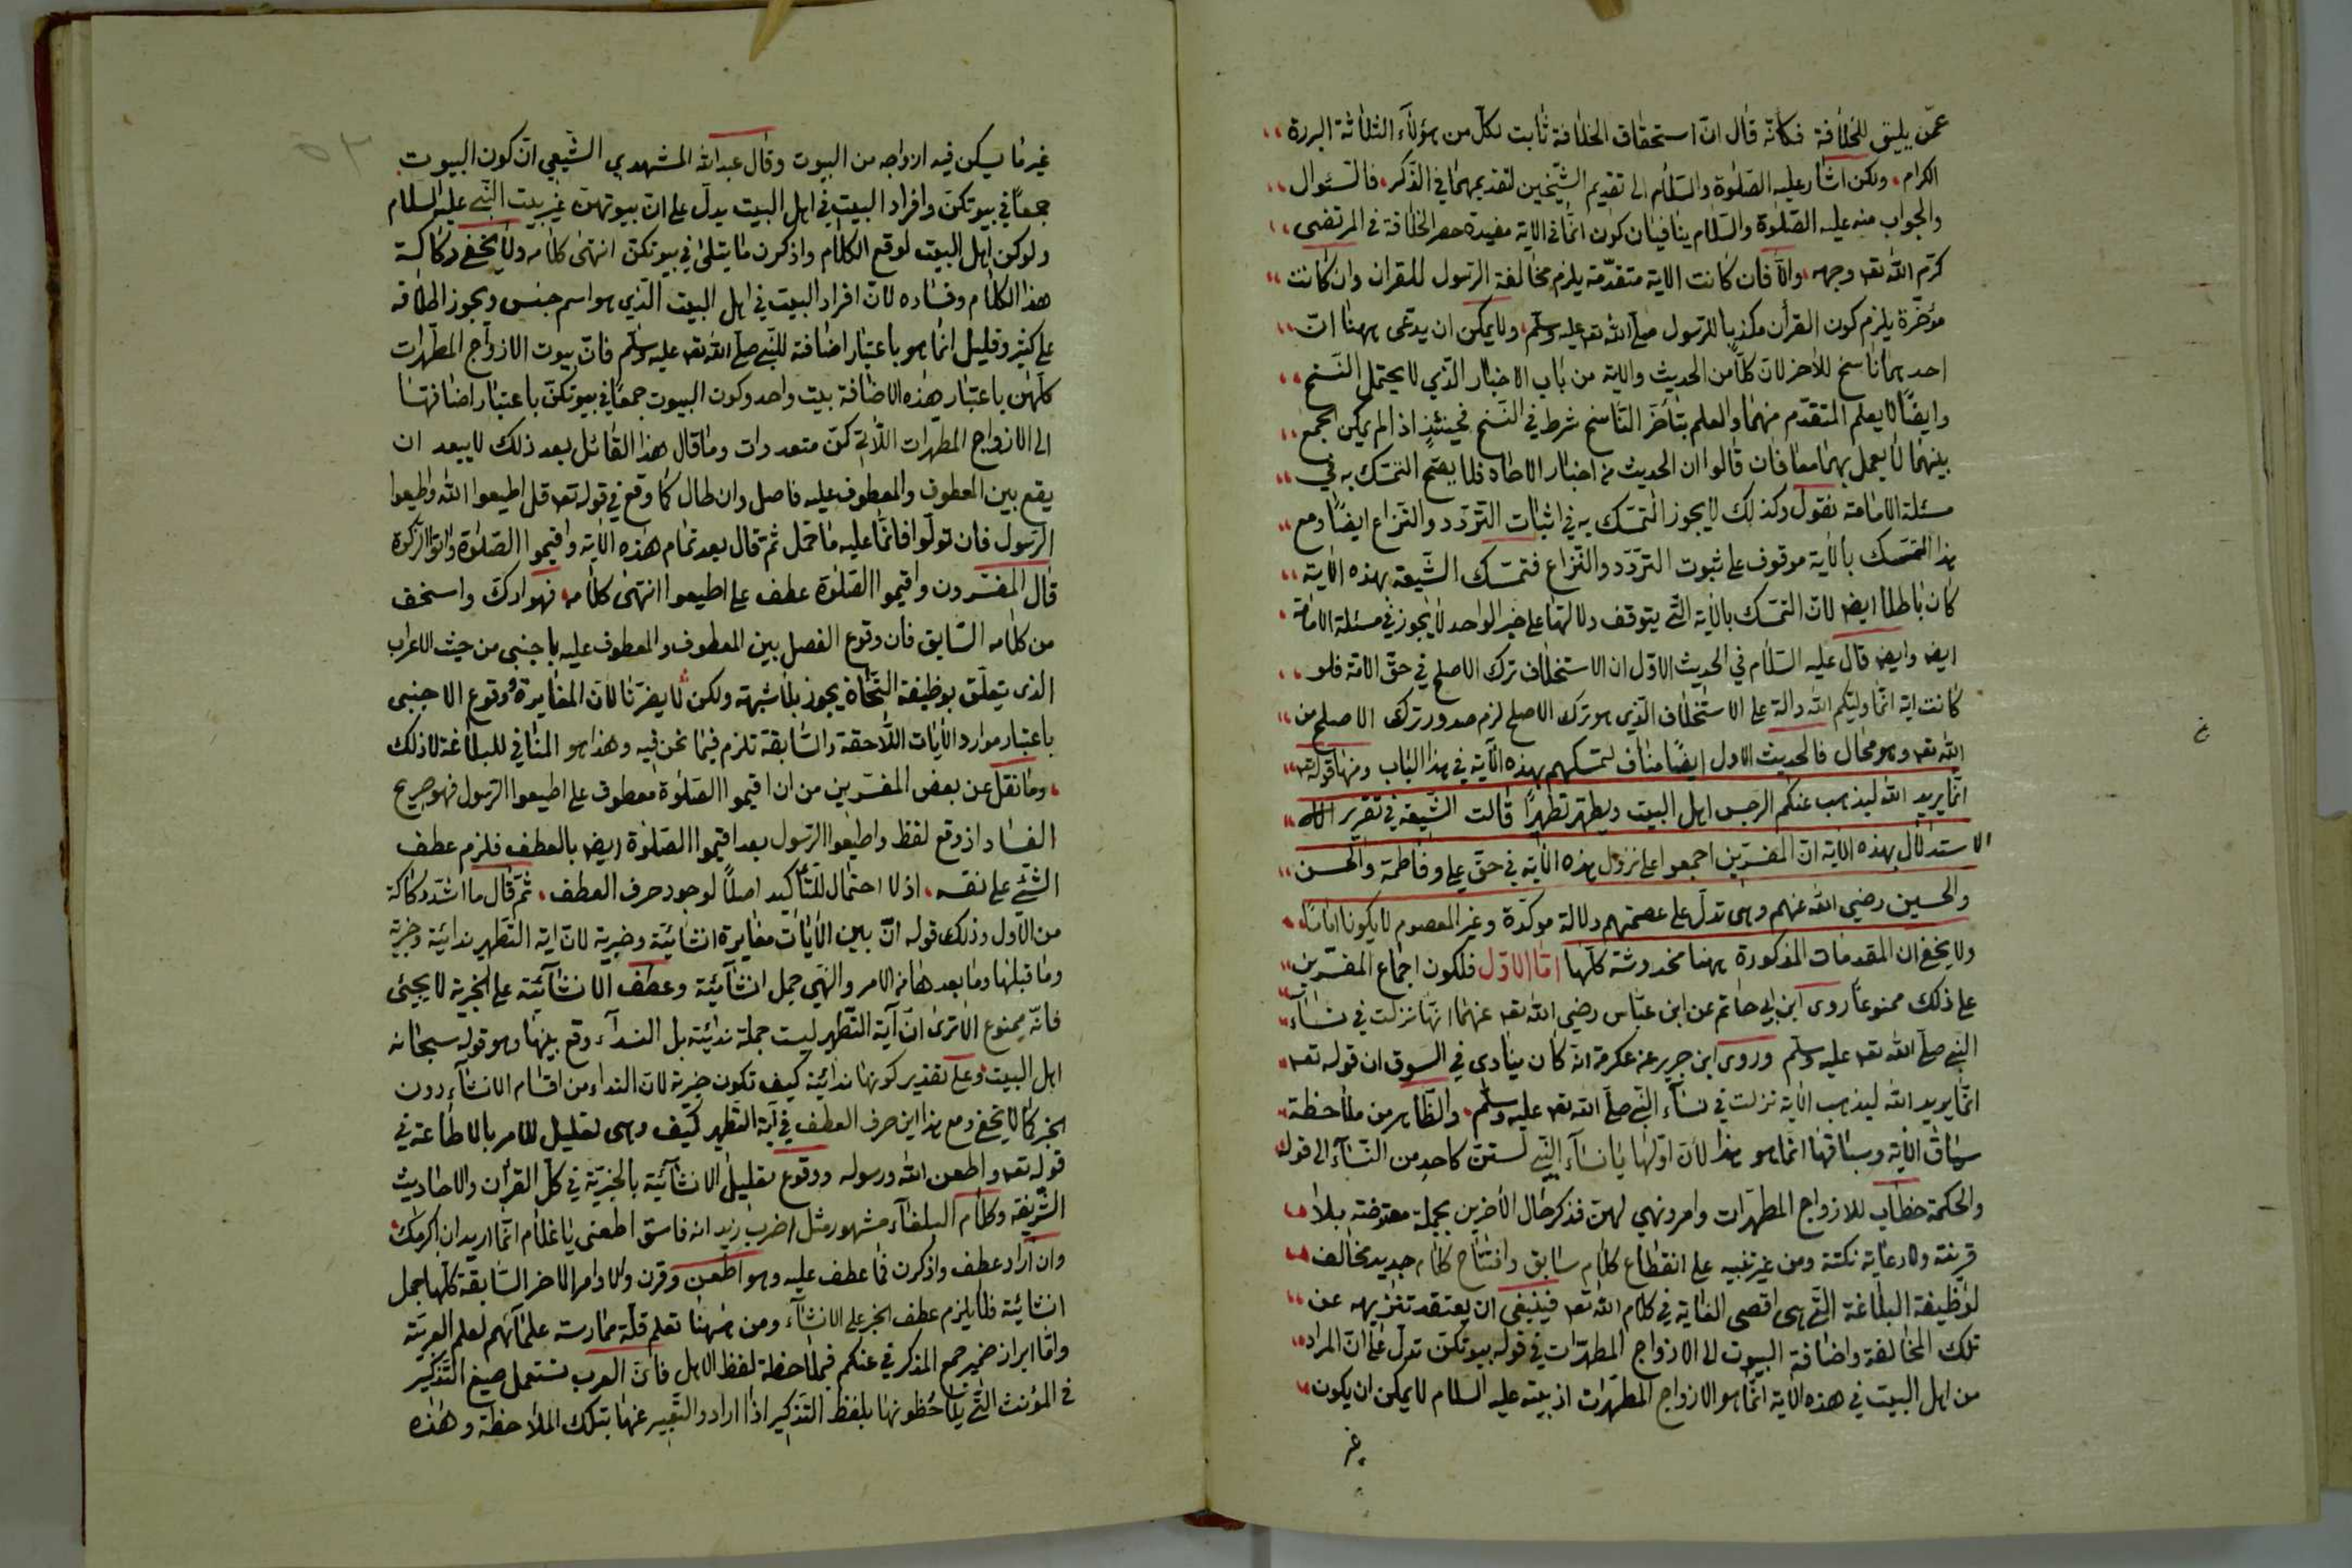 عمّن يليق للخلافة فكانّه قال انّ استحقاق الخلافة ثابت لكلّ من هؤلاء الثلاثة البررة
الكرام ولكن اشار عليه الصّلوة والسّلام الى تقديم الشّيخين لتقديمهما في الذّكر فالسّؤال
والجواب منه عليه الصّلوة والسّلام ينافيان كون انّما في الاية مفيدة حصر الخلافة في المرتضى
كرّم الله تعه وجهه والّا فان كانت الاية متقدّمة يلزم مخالفة الرّسول للقران وان كانت
مؤخّرة يلزم كون القرأن مكذبا للرّسول صلّى الله تعه عليه وسلّم ولا يمكن ان يدّعى ههنا انّ
احدهما ناسخ للأخر لانّ كلّا من الحديث والاية من باب الاخبار الّذي لا يحتمل النّسخ
وايضًا لا يعلم المتقدّم منهما والعلم بتأخّر النّاسخ شرط في النّسخ فحينئذٍ اذا لم يكن الجمع
بينهما لا يعمل بهما معا فان قالوا ان الحديث من اخبار الاحاد فلا يصحّ التمسّك به في
مسئلة الامامة نقول وكذلك لا يجوز التمسّك به في اثبات التّردّد والنّزاع ايضًا ومع
هذا التمسّك بالاية موقوف على ثبوت التردّد والنّزاع فتمسّك الشّيعة بهذه الاية
كان باطلا ايضا لانّ التمسّك بالاية الّتي يتوقف دلالتها على خبر الواحد لا يجوز في مسئلة الامامة
ايضا وايضا قال عليه السّلام في الحديث الاوّل ان الاستخلاف ترك الاصلح في حقّ الامّة فلو
كانت اية انّما وليّكم الله دالّة على الاستخلاف الّذي هو ترك الاصلح لزم صدور ترك الاصلح من
الله تعه وهو محال فالحديث الاول ايضًا مناف لتمسّكهم بهذه الاية في هذا الباب ومنها قوله تعه
انّما يريد الله ليذهب عنكم الرجس اهل البيت ويطهّر تطهيرًا قالت الشّيعة في تقرير
الاستدلال بهذه الاية انّ المفسّرين اجمعوا على نزول هذه الاية في حقّ علي وفاطمة والحسن
والحسين رضي الله عنهم وهي تدلّ على عصمتهم دلالة موكّدة وغير المعصوم لا يكون اماما
ولا يخفى ان المقدمات المذكورة ههنا مخدوشة كلّها امّا الاوّل فلكون اجماع المفسّرين
على ذلك ممنوعًا روى ابن ابي حاتم عن ابن عبّاس رضي الله تعه عنهما انّها نزلت في نساء
النّبي صلّى الله تعه عليه وسلم وروى ابن جرير عن عكرمة انّه كان ينادي في السّوق ان قوله تعه
انّما يريد الله ليذهب الاية نزلت في نساء النّبي صلّى الله تعه عليه وسلّم والظّاهر من ملاحظة
سياق الاية وسباقها انّما هو هذا لانّ اوّلها يا نساء النّبي لستنّ كاحد من النّساء الى قوله
والحكمة خطاب للازواج المطهّرات وامر ونهي لهنّ فذكر حال الاخرين بجملة معترضة بلا
قرينة ولا رعاية نكتة ومن غير تنبيه على انقطاع كلام سابق وافتتاح كلام جديد مخالف
لوظيفة البلاغة الّتي هي اقصى الغاية في كلام الله تعه فينبغي ان يعتقد تنزيهه عن
تلك المخالفة واضافة البيوت الى الازواج المطهرّات في قوله بيوتكنّ تدلّ على انّ المراد
من اهل البيت في هذه الاية انّما هو الازواج المطهّرات اذ بيته عليه السلام لا يمكن ان يكون
غير
غير ما يسكن فيه ازواجه من البيوت وقال عبد الله المشهدي الشّيعي انّ كون البيوت
جمعًا في بيوتكنّ وافراد البيت في اهل البيت يدلّ على انّ بيوتهنّ غير بيت النّبي عليه السلام
ولو كن اهل البيت لوقع الكلام واذكرن ما يتلى في بيوتكن انتهى كلامه ولا يخفى ركاكة
هذا الكلام وفساده لانّ افراد البيت في اهل البيت الّذي هو اسم جنس ويجوز اطلاقه
على كثير وقليل انّما هو باعتبار اضافته للنّبي صلّى الله تعه عليه وسلّم فانّ بيوت الازواج المطهّرات
كلّهنّ باعتبار هذه الاضافة بيت واحد وكون البيوت جمعًا في بيوتكنّ باعتبار اضافتها
الى الازواج المطهّرات اللّاتي كنّ متعددات وما قال هذا القائل بعد ذلك لا يبعد ان
يقع بين المعطوف والمعطوف عليه فاصل وان طال كما وقع في قوله تعه قل اطيعوا الله واطيعوا
الرّسول فان تولّوا فانّما عليه ما حمّل ثم قال بعد تمام هذه الاية واقيموا الصّلوة واتوا الزّكوة
قال المفسّرون واقيموا الصّلوة عطف على اطيعوا انتهى كلامه فهو اركّ واسخف
من كلامه السّابق فان وقوع الفصل بين المعطوف والمعطوف عليه باجنبي من حيث الاعراب
الذي يتعلّق بوظيفة النّحاة يجوز بلا شبهة ولكن لا يضرّنا لانّ المغايرة ووقوع الاجنبي
باعتبار موارد الايات اللّاحقة والسّابقة تلزم فيما نحن فيه وهذا هو المنافي للبلاغة لا ذلك
وما نقل عن بعض المفسّرين من ان اقيموا الصّلوة معطوف على اطيعوا الرّسول فهو صريح
الفساد اذ وقع لفظ واطيعوا الرّسول بعد اقيموا الصّلوة ايضا بالعطف فلزم عطف
الشّئ على نفسه اذ لا احتمال للتّأكيد اصلًا لوجود حرف العطف ثمّ قال ما اشدّ ركاكة
من الاوّل وذلك قوله انّ بين الايات مغايرة انشائيّة وخبرية لانّ اية التّطهير ندائية وخبرية
وما قبلها وما بعدها من الامر والنّهي جمل انشائيّة وعطف الانشائيّة على الخبرية لا يجيئ
فانّه ممنوع الا ترى انّ آية التّطهير ليست جملة ندائيّة بل النداء وقع بينها وهو قوله سبحانه
اهل البيت وعلى تقدير كونها ندائية كيف تكون خبرية لانّ النداء من اقسام الانشاء دون
الخبر كما لا يخفى ومع هذا اين حرف العطف في آية التّطهير كيف وهي تعليل للامر بالاطاعة في
قوله تعه واطعن الله ورسوله ووقوع تعليل الانشائيّة بالخبريّة في كلّ القرأن والاحاديث
الشّريفة وكلام البلغاء مشهور مثل اضرب زيد انه فاسق اطعني يا غلام انّما اريد ان اكرمك
وان اراد عطف واذكرن فما عطف عليه وهو اطعن وقرن والاوامر الاخر السّابقة كلّها جمل
انشائية فلا يلزم عطف الخبر على الانشاء ومن ههنا تعلم قلّة ممارسة علمائهم لعلم العربيّة
وامّا ايراد ضمير جمع المذكر في عنكم فبملاحظة لفظ الاهل فانّ العرب تستعمل صيغ التّذكير
في المؤنث الّتي يلاحظونها بلفظ التّذكير اذا ارادوا التّعبير عنها بتلك الملاحظة وهذه